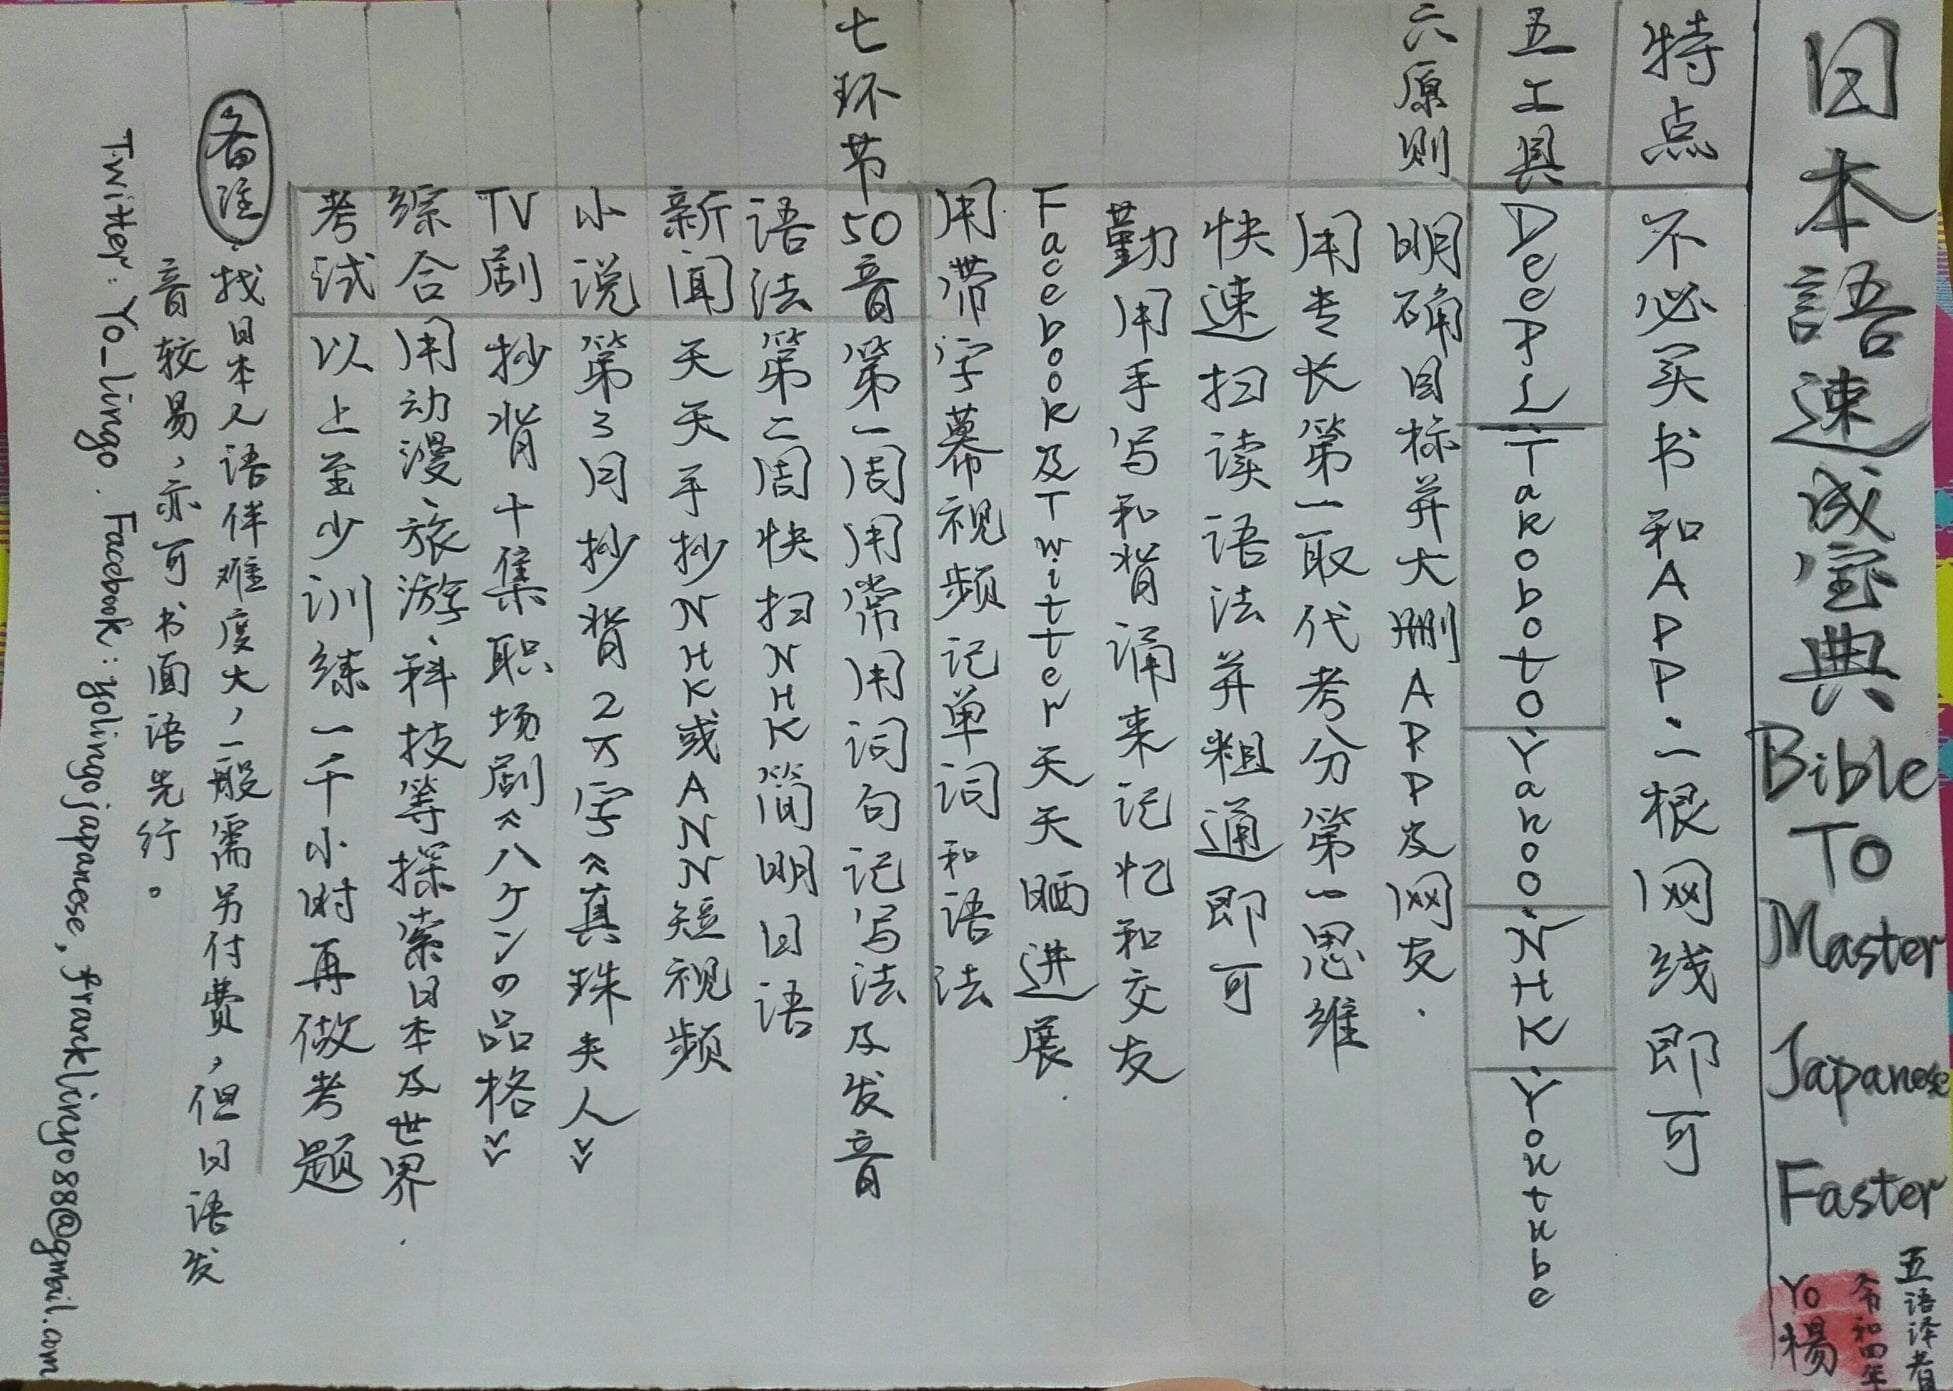 日本語速成宝典 Bible To Master Japanese Faster
五语译者
令和四年
Yo 楊
特点 不必买书和APP.一根网线即可
五工具 DeepL.Takoboto.Yahoo.NHK.Youtube
六原则 明确目标并大删APP及网友.
用专长第一取代考分第一思维
快速扫读语法并粗通即可
勤用手写和背诵来记忆和交友
Facebook及Twitter天天晒进展.
用带字幕视频记单词和语法
七环节 50音 第一周用常用词句记写法及发音
语法 第二周快扫NHK简明日语
新闻 天天手抄NHK或ANN短视频
小说 第3月抄背2万字《真珠夫人》
TV剧 抄背十集职场剧《ハケンの品格》
综合 用动漫、旅游、科技等探索日本及世界.
考试 以上至少训练一千小时再做考题
备注.找日本人语伴难度大,一般需另付费,但日语发
音较易,亦可书面语先行。
Twitter: Yo_lingo. Facebook: yolingojapanese, franklinyo88@gmail.com